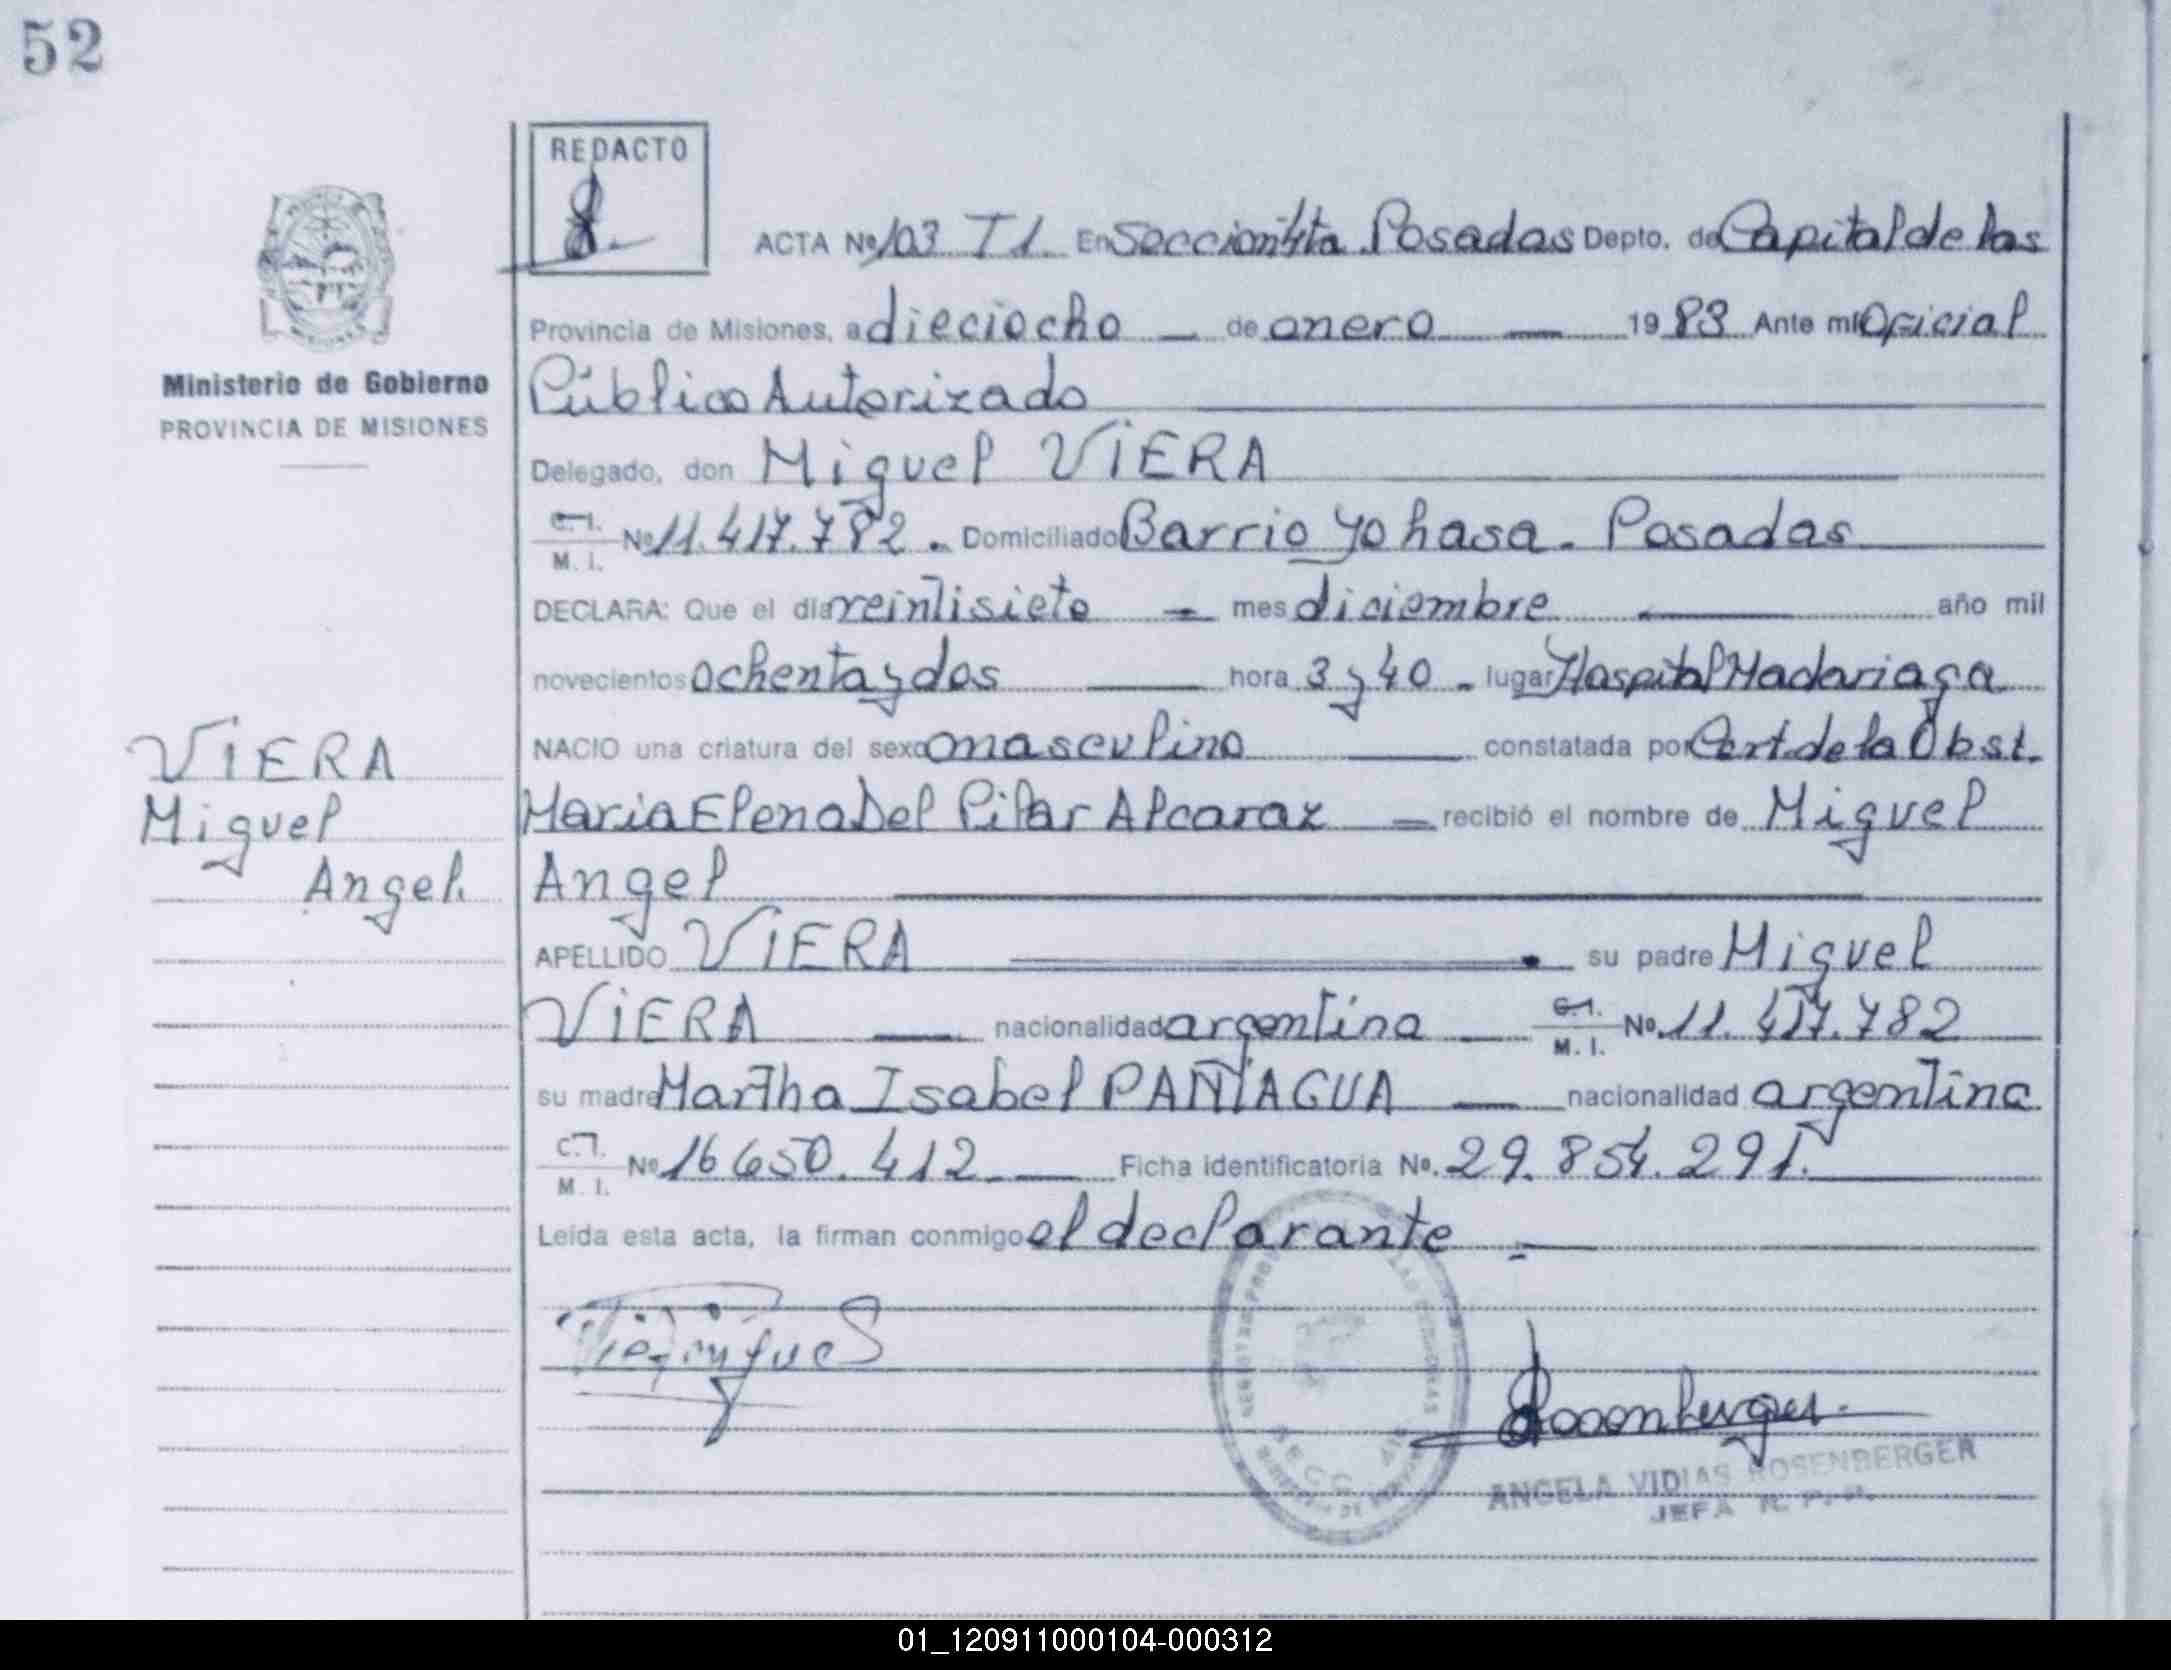 52
REDACTO
ACTA Nº 103 T1. En Seccion 4ta Posadas Depto. de Capital de las
Provincia de Misiones, a dieciocho de enero 1983 Ante mí Oficial
Público Autorizado
Delegado, don Miguel VIERA
C.I. M. I. Nº 11.417.782. Domiciliado Barrio Yohasa. Posadas
DECLARA: Que el día veintisiete mes diciembre año mil
novecientos ochenta y dos hora 3 y 40 lugar Hospital Madariaga
NACIO una criatura del sexo masculino constatada por Cert. de la Obst.
Maria Elena Del Pilar Alcaraz recibió el nombre de Miguel
Angel
APELLIDO VIERA su padre Miguel
VIERA nacionalidad argentina C.I. M. I. Nº. 11.417.782
su madre Martha Isabel PANIAGUA nacionalidad argentina
C.I. M. I. Nº 16 650.412 Ficha identificatoria Nº. 29.854.291.
Leída esta acta, la firman conmigo el declarante
Rosenberger
ANGELA VIDIAS ROSENBERGER
JEFA R. P. P.
Ministerio de Gobierno
PROVINCIA DE MISIONES
VIERA
Miguel
Angel.
01_120911000104-000312